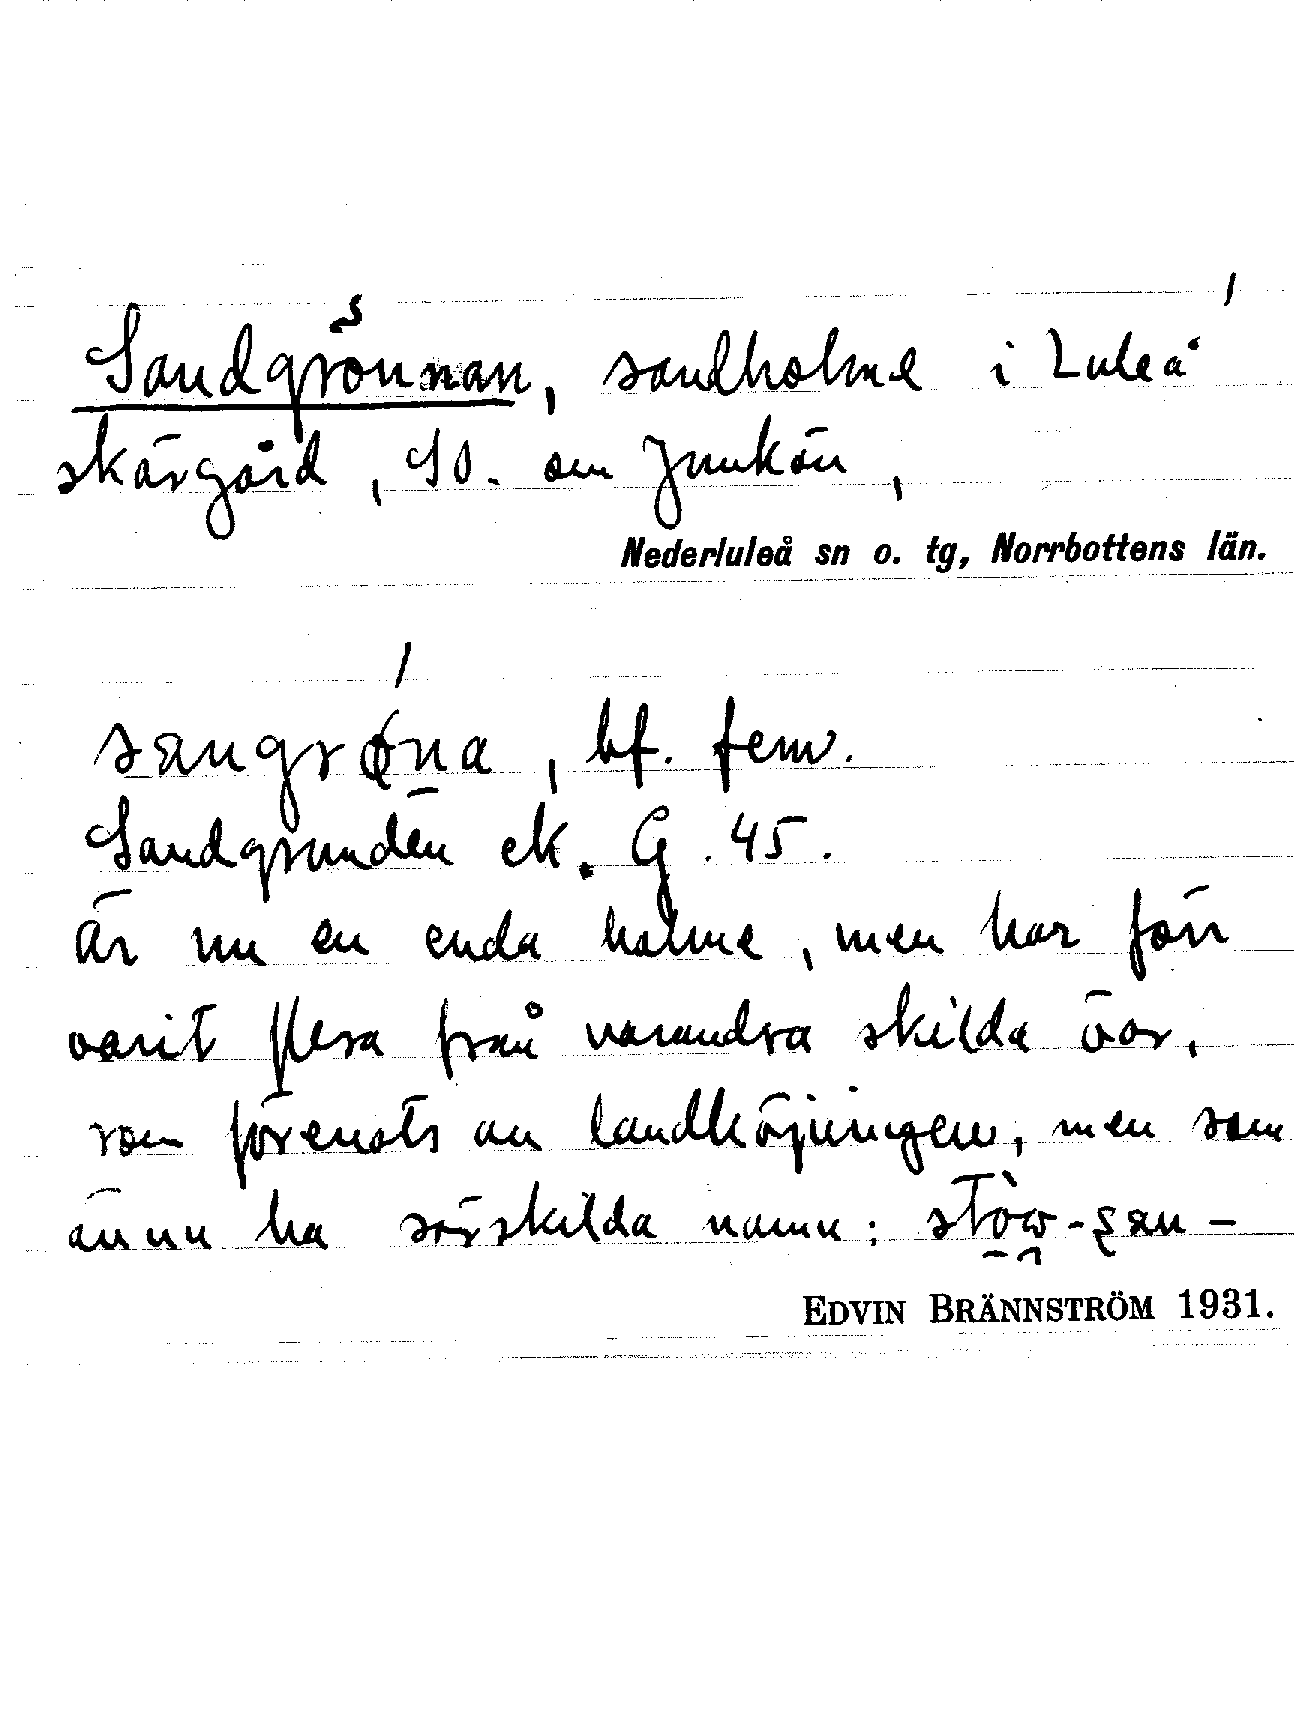 Sandgrönnan, sandholme i Luleå
skärgård, SO. om Junkön,
Nederluleå sn o. tg, Norrbottens län.
sangrøna, bf. fem.
Sandgrunden ek. G. 45.
Är nu en enda holme, men har förr
varit flera från varandra skilda öar,
som förenats av landhöjningen, men som
ännu ha särskilda namn:
EDVIN BRÄNNSTRÖM 1931.